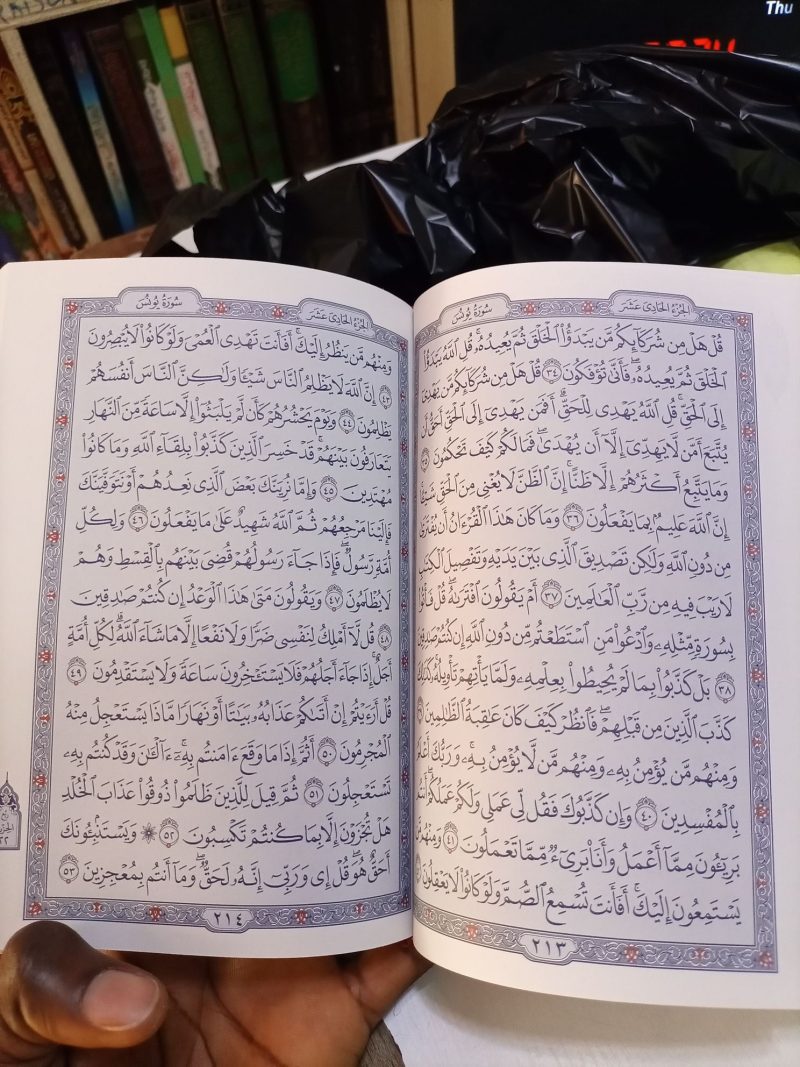 Thu
الجُزْءُ الحَادِيَ عَشَرَ
سُورَةُ يُونُسَ
قُلْ هَلْ مِن شُرَكَآئِكُم مَّن يَبْدَؤُاْ ٱلْخَلْقَ ثُمَّ يُعِيدُهُۥۚ قُلِ ٱللَّهُ يَبْدَؤُاْ
ٱلْخَلْقَ ثُمَّ يُعِيدُهُۥۖ فَأَنَّىٰ تُؤْفَكُونَ ٣٤ قُلْ هَلْ مِن شُرَكَآئِكُم مَّن يَهْدِىٓ
إِلَى ٱلْحَقِّۚ قُلِ ٱللَّهُ يَهْدِى لِلْحَقِّۗ أَفَمَن يَهْدِىٓ إِلَى ٱلْحَقِّ أَحَقُّ أَن
يُتَّبَعَ أَمَّن لَّا يَهِدِّىٓ إِلَّآ أَن يُهْدَىٰۖ فَمَا لَكُمْ كَيْفَ تَحْكُمُونَ ٣٥
وَمَا يَتَّبِعُ أَكْثَرُهُمْ إِلَّا ظَنًّاۚ إِنَّ ٱلظَّنَّ لَا يُغْنِى مِنَ ٱلْحَقِّ شَيْـًٔاۚ
إِنَّ ٱللَّهَ عَلِيمٌۢ بِمَا يَفْعَلُونَ ٣٦ وَمَا كَانَ هَٰذَا ٱلْقُرْءَانُ أَن يُفْتَرَىٰ
مِن دُونِ ٱللَّهِ وَلَٰكِن تَصْدِيقَ ٱلَّذِى بَيْنَ يَدَيْهِ وَتَفْصِيلَ ٱلْكِتَٰبِ
لَا رَيْبَ فِيهِ مِن رَّبِّ ٱلْعَٰلَمِينَ ٣٧ أَمْ يَقُولُونَ ٱفْتَرَىٰهُۖ قُلْ فَأْتُواْ
بِسُورَةٍ مِّثْلِهِۦ وَٱدْعُواْ مَنِ ٱسْتَطَعْتُم مِّن دُونِ ٱللَّهِ إِن كُنتُمْ صَٰدِقِينَ
٣٨ بَلْ كَذَّبُواْ بِمَا لَمْ يُحِيطُواْ بِعِلْمِهِۦ وَلَمَّا يَأْتِهِمْ تَأْوِيلُهُۥۚ كَذَٰلِكَ
كَذَّبَ ٱلَّذِينَ مِن قَبْلِهِمْۖ فَٱنظُرْ كَيْفَ كَانَ عَٰقِبَةُ ٱلظَّٰلِمِينَ
وَمِنْهُم مَّن يُؤْمِنُ بِهِۦ وَمِنْهُم مَّن لَّا يُؤْمِنُ بِهِۦۚ وَرَبُّكَ أَعْلَمُ
بِٱلْمُفْسِدِينَ ٤٠ وَإِن كَذَّبُوكَ فَقُل لِّى عَمَلِى وَلَكُمْ عَمَلُكُمْۖ أَنتُم
بَرِيٓـُٔونَ مِمَّآ أَعْمَلُ وَأَنَا۠ بَرِىٓءٌ مِّمَّا تَعْمَلُونَ ٤١ وَمِنْهُم مَّن
يَسْتَمِعُونَ إِلَيْكَۚ أَفَأَنتَ تُسْمِعُ ٱلصُّمَّ وَلَوْ كَانُواْ لَا يَعْقِلُونَ
٢١٣
الجُزْءُ الحَادِيَ عَشَرَ
سُورَةُ يُونُسَ
وَمِنْهُم مَّن يَنظُرُ إِلَيْكَۚ أَفَأَنتَ تَهْدِى ٱلْعُمْىَ وَلَوْ كَانُواْ لَا يُبْصِرُونَ
٤٣ إِنَّ ٱللَّهَ لَا يَظْلِمُ ٱلنَّاسَ شَيْـًٔا وَلَٰكِنَّ ٱلنَّاسَ أَنفُسَهُمْ
يَظْلِمُونَ ٤٤ وَيَوْمَ يَحْشُرُهُمْ كَأَن لَّمْ يَلْبَثُوٓاْ إِلَّا سَاعَةً مِّنَ ٱلنَّهَارِ
يَتَعَارَفُونَ بَيْنَهُمْۚ قَدْ خَسِرَ ٱلَّذِينَ كَذَّبُواْ بِلِقَآءِ ٱللَّهِ وَمَا كَانُواْ
مُهْتَدِينَ ٤٥ وَإِمَّا نُرِيَنَّكَ بَعْضَ ٱلَّذِى نَعِدُهُمْ أَوْ نَتَوَفَّيَنَّكَ
فَإِلَيْنَا مَرْجِعُهُمْ ثُمَّ ٱللَّهُ شَهِيدٌ عَلَىٰ مَا يَفْعَلُونَ ٤٦ وَلِكُلِّ
أُمَّةٍ رَّسُولٌۖ فَإِذَا جَآءَ رَسُولُهُمْ قُضِىَ بَيْنَهُم بِٱلْقِسْطِ وَهُمْ
لَا يُظْلَمُونَ ٤٧ وَيَقُولُونَ مَتَىٰ هَٰذَا ٱلْوَعْدُ إِن كُنتُمْ صَٰدِقِينَ
٤٨ قُل لَّآ أَمْلِكُ لِنَفْسِى ضَرًّا وَلَا نَفْعًا إِلَّا مَا شَآءَ ٱللَّهُۗ لِكُلِّ أُمَّةٍ
أَجَلٌۚ إِذَا جَآءَ أَجَلُهُمْ فَلَا يَسْتَـْٔخِرُونَ سَاعَةً وَلَا يَسْتَقْدِمُونَ ٤٩
قُلْ أَرَءَيْتُمْ إِنْ أَتَىٰكُمْ عَذَابُهُۥ بَيَٰتًا أَوْ نَهَارًا مَّاذَا يَسْتَعْجِلُ مِنْهُ
ٱلْمُجْرِمُونَ ٥٠ أَثُمَّ إِذَا مَا وَقَعَ ءَامَنتُم بِهِۦٓۚ ءَآلْـَٰٔنَ وَقَدْ كُنتُم بِهِۦ
تَسْتَعْجِلُونَ ٥١ ثُمَّ قِيلَ لِلَّذِينَ ظَلَمُواْ ذُوقُواْ عَذَابَ ٱلْخُلْدِ
هَلْ تُجْزَوْنَ إِلَّا بِمَا كُنتُمْ تَكْسِبُونَ ٥٢ ۞ وَيَسْتَنۢبِـُٔونَكَ
أَحَقٌّ هُوَۖ قُلْ إِى وَرَبِّىٓ إِنَّهُۥ لَحَقٌّۖ وَمَآ أَنتُم بِمُعْجِزِينَ ٥٣
٢١٤